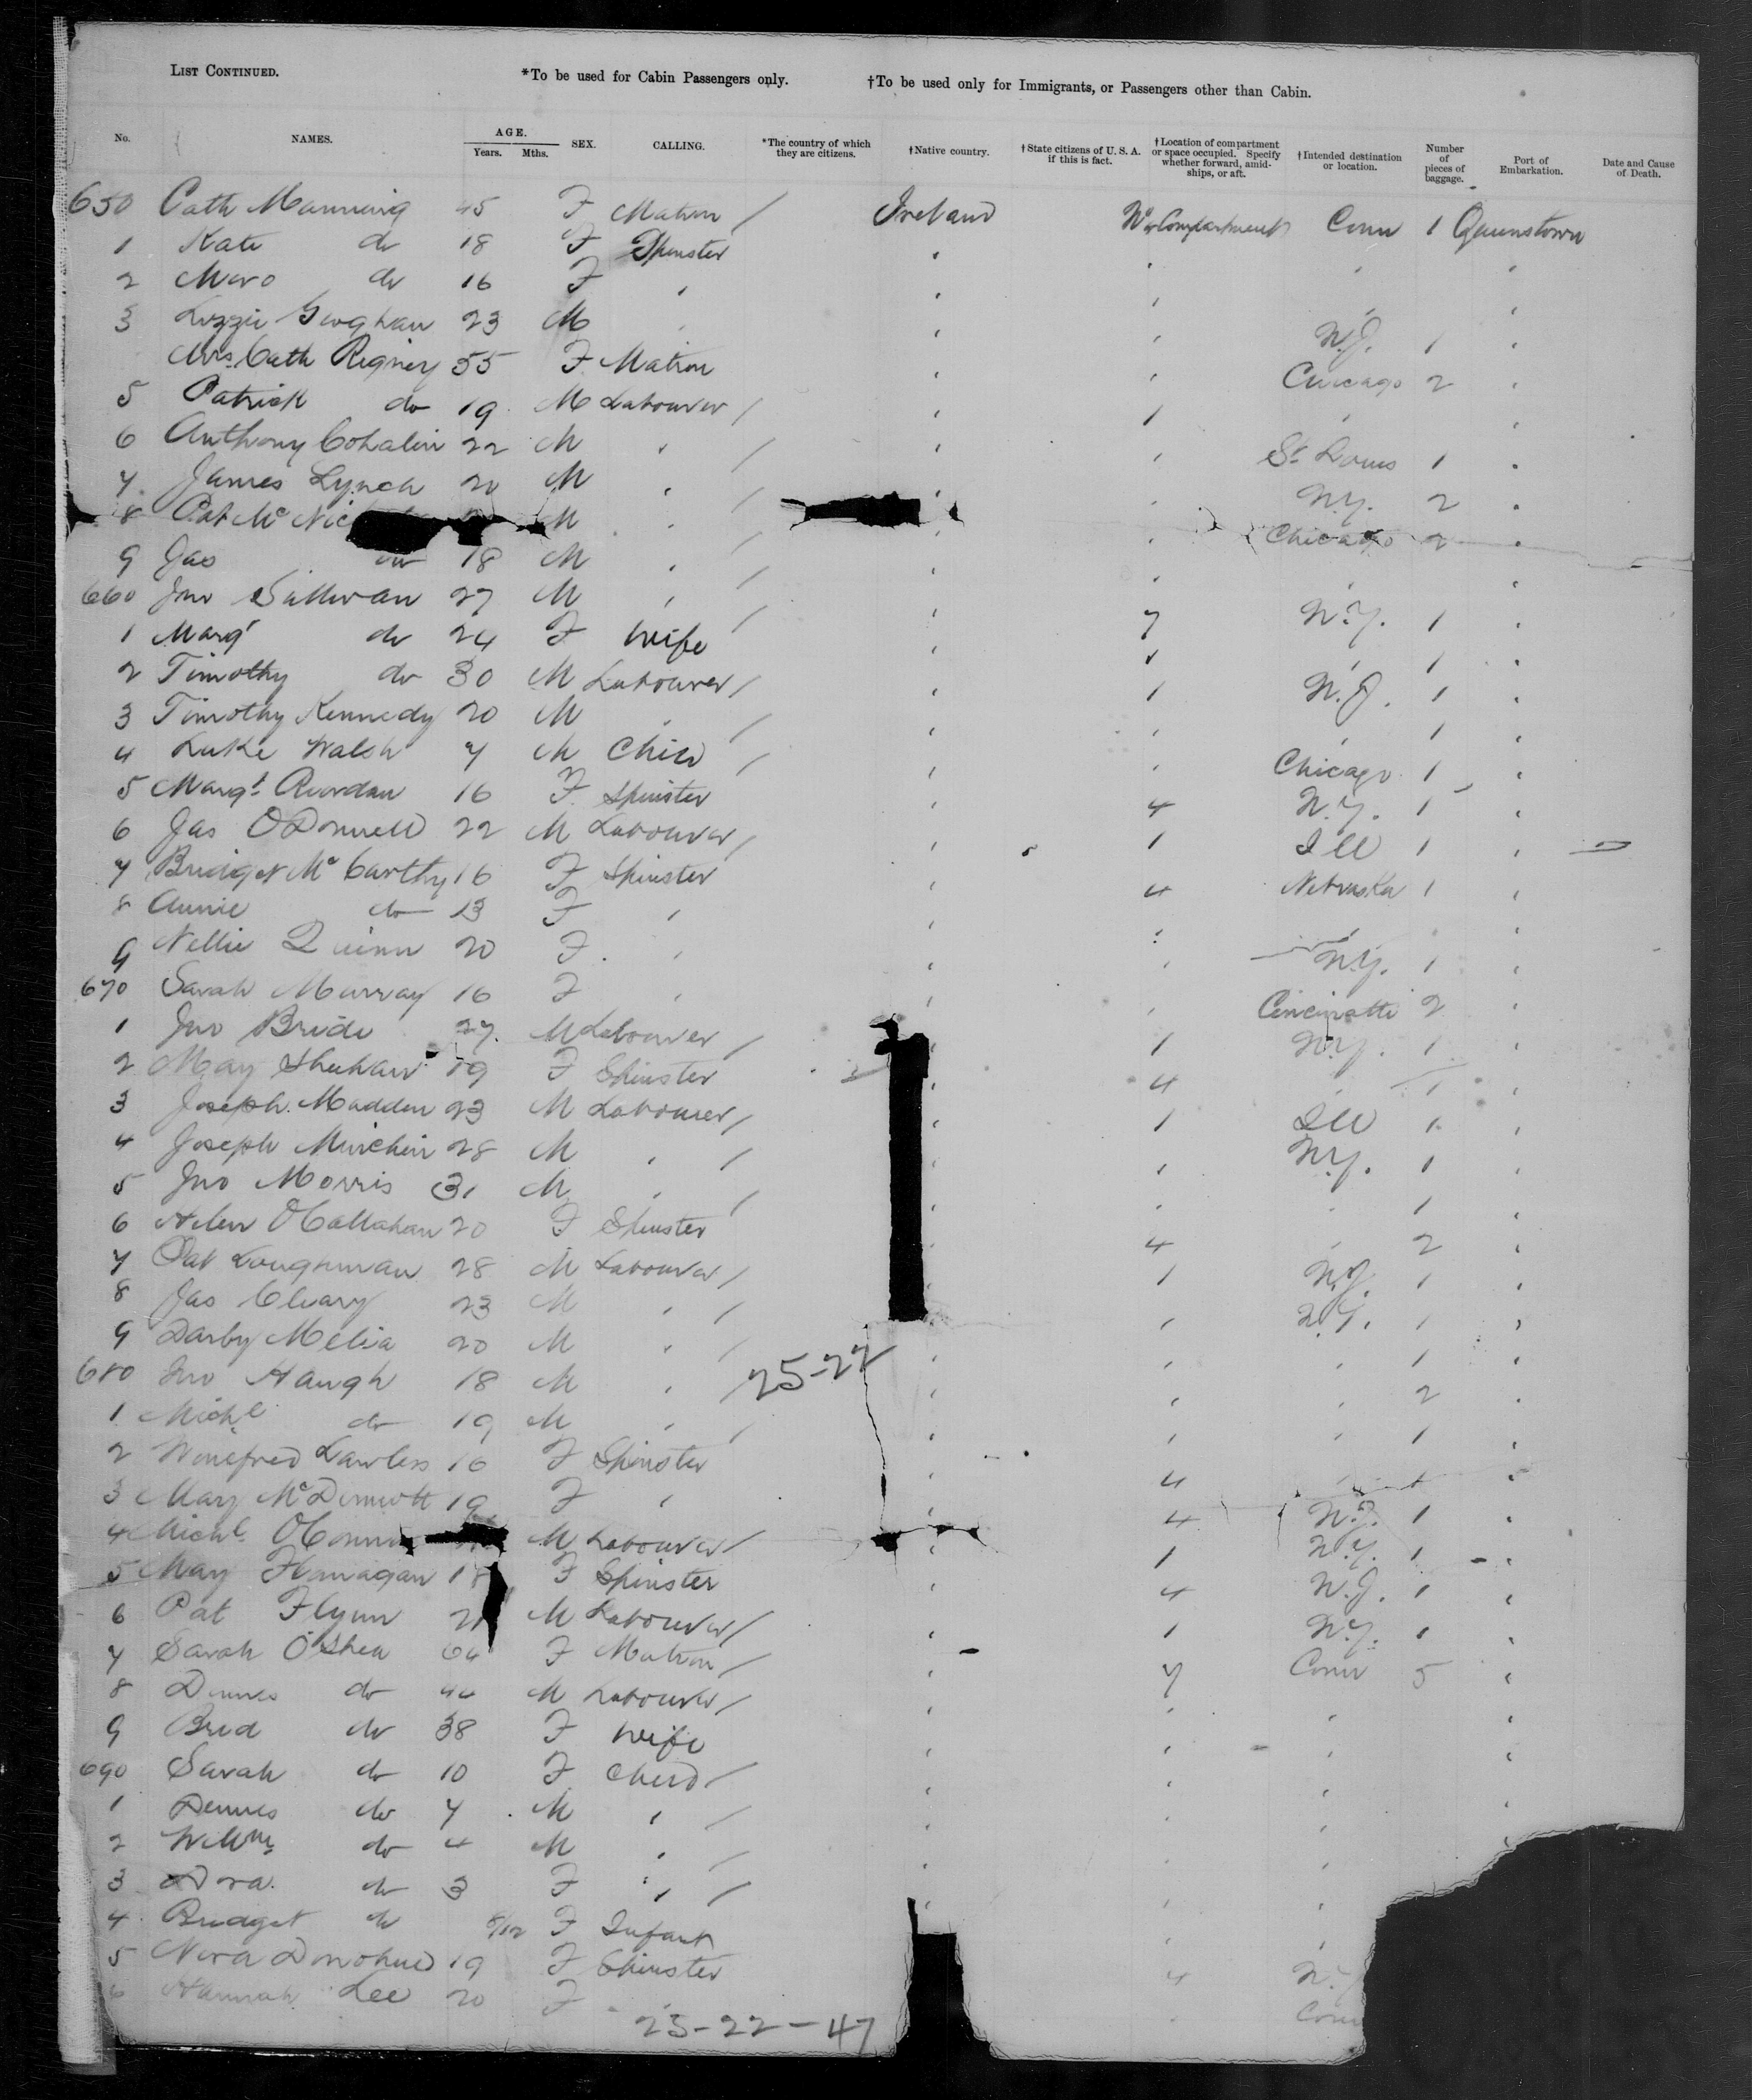 LIST CONTINUED. *To be used for Cabin Passengers only. †To be used only for Immigrants, or Passengers other than Cabin.
No. NAMES. AGE. Years. Mths. SEX. CALLING. *The country of which they are citizens. †Native country. †State citizens of U. S. A. if this is fact. †Location of compartment or space occupied. Specify whether forward, amidships, or aft. †Intended destination or location. Number of pieces of baggage. Port of Embarkation. Date and Cause of Death.
650 Cath Manning 45 F Matron / Ireland Compartment Conn 1 Queenstown
1 Kate do 18 F Spinster
2 do 16 F
3 Lizzie Geoghan 23 M N.J. 1
Mrs. Cath Rigney 55 F Matron Chicago 2
5 Patrick do 19 M Labourer / 1
6 Anthony Cohalin 22 M / St Louis 1
7 James Lynch 20 M / N.Y. 2
8 Pat Mc Nic M / Chicago 2
9 Jas do 18 M /
660 Jno Sullivan 27 M / 7 N.Y. 1
1 Margt do 24 F Wife 1
2 Timothy do 30 M Labourer / 1 N.J. 1
3 Timothy Kennedy 20 M / 1
4 Luke Walsh 7 M Child / Chicago 1
5 Margt Riordan 16 F Spinster 4 N.Y. 1
6 Jas O'Donnell 22 M Labourer / 1 Ill 1
7 Bridget Mc Carthy 16 F Spinster 4 Nebraska 1
8 Annie do 13 F
9 Nellie Quinn 20 F N.Y. 1
670 Sarah Murray 16 F Cincinatti 2
1 Jno Bride 27 M Labourer / 1 N.Y. 1
2 May Sheehan 19 F Spinster 4 1
3 Joseph Madden 23 M Labourer / 1 Ill 1
4 Joseph Minchin 28 M / N.Y. 1
5 Jno Morris 31 M / 1
6 Helen O'Callahan 20 F Spinster 4 2
7 Pat Loughman 28 M Labourer / 1 N.J. 1
8 Jas Cleary 23 M / N.Y. 1
9 Darby Melia 20 M / 1
680 Jno Haugh 18 M / 25-22 2
1 Michl do 19 M / 1
2 Winefred Lawless 16 F Spinster 4
3 Mary McDermott 19 F 4 N.J. 1
4 Michl. M Labourer / 1 N.Y. 1
5 May Flanagan 18 F Spinster 4 N.J. 1
6 Pat Flynn M Labourer / 1 N.Y. 1
7 Sarah O'Shea 64 F Matron / 7 Conn 5
8 Dennes do M Labourer /
9 Brid do 38 F Wife
690 Sarah do 10 F Child /
1 Dennes do 7 M /
2 Willm do 4 M /
3 Nora do 3 F /
4 Bridget do F Infant
5 Nora Donohue 19 F Spinster 4 N.
6 Hannah Lee 20 F Conn
25-22-47